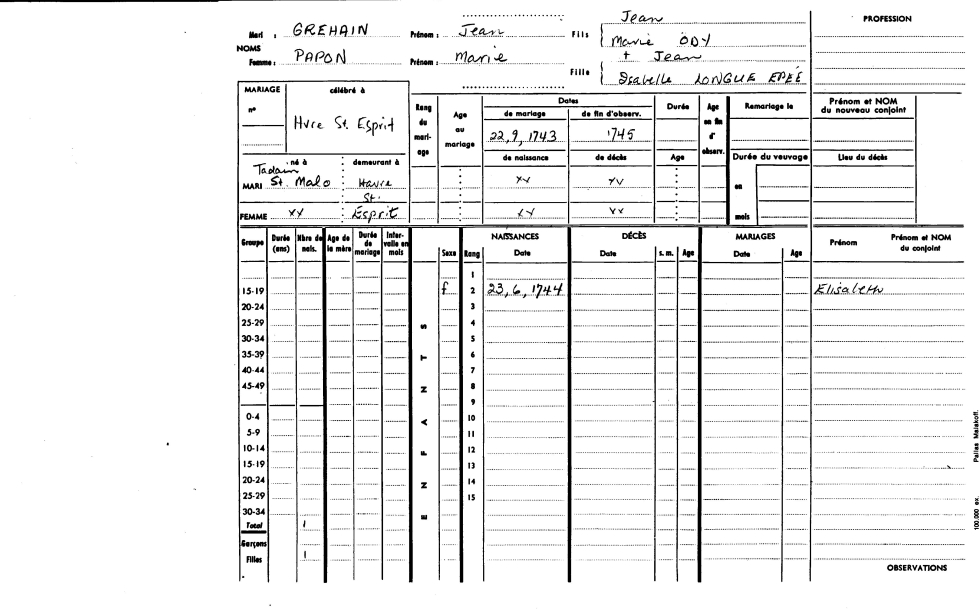 Mari : GREHAIN Prénom : Jean Fils { Jean
Marie ODY
NOMS
Femme : PAPON Prénom : Marie Fille { + Jean
Isabelle LONGUE EPEÉ
PROFESSION
MARIAGE
n°
célébré à
Hvre St. Esprit
Rang du mari- age
Age au mariage
Dates
de mariage de fin d'observ.
22,9,1743 1745
de naissance de décès
Durée
Age
Age en fin d' observ.
Remariage le
Durée du veuvage
en
mois
Prénom et NOM
du nouveau conjoint
Lieu du décès
né à demeurant à
MARI St. Malo Havre
St.
FEMME xx Esprit
xx xx
xx xx
Groupe Durée (ans) Nbre de nais. Age de la mère Durée de mariage Inter- valle en mois Sexe Rang NAISSANCES Date DÉCÈS Date s. m. Age MARIAGES Date Age Prénom Prénom et NOM du conjoint
1
15-19 f 2 23,6,1744 Elisabeth
20-24 3
25-29 4
30-34 5
35-39 6
40-44 7
45-49 8
9
0-4 10
5-9 11
10-14 12
15-19 13
20-24 14
25-29 15
30-34
Total 1
Garçons
Filles 1
ENFANTS
OBSERVATIONS
100.000 ex. Pallas Malakoff.